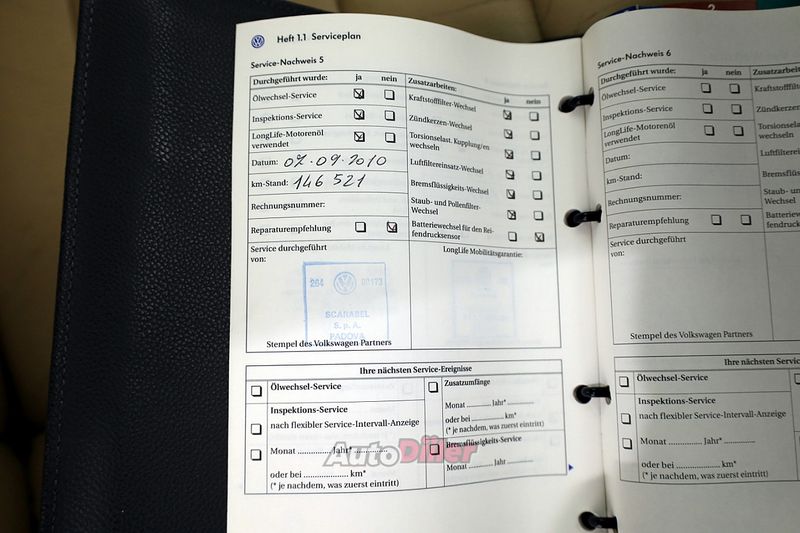 2
Heft 1.1 Serviceplan
Service-Nachweis 5
Durchgeführt wurde: ja nein
Ölwechsel-Service
Inspektions-Service
LongLife-Motorenöl
verwendet
Datum: 07.09.2010
km-Stand: 146521
Rechnungsnummer:
Reparaturempfehlung
Service durchgeführt
von:
264 00173
SCARABEL
S.p.A.
PADOVA
Stempel des Volkswagen Partners
Zusatzarbeiten:
ja nein
Kraftstofffilter-Wechsel
Zündkerzen-Wechsel
Torsionselast. Kupplung/en
wechseln
Luftfiltereinsatz-Wechsel
Bremsflüssigkeits-Wechsel
Staub- und Pollenfilter-
Wechsel
Batteriewechsel für den Rei-
fendrucksensor
LongLife Mobilitätsgarantie:
Ihre nächsten Service-Ereignisse
Ölwechsel-Service
Inspektions-Service
nach flexibler Service-Intervall-Anzeige
Monat .......... Jahr* ..........
oder bei .................... km*
(* je nachdem, was zuerst eintritt)
Zusatzumfänge
Monat .......... Jahr* ..........
oder bei .......... km*
(* je nachdem, was zuerst eintritt)
Bremsflüssigkeits-Service
Monat .......... Jahr ..........
AutoDiler
Service-Nachweis 6
Durchgeführt wurde: ja nein
Ölwechsel-Service
Inspektions-Service
LongLife-Motorenöl
verwendet
Datum:
km-Stand:
Rechnungsnummer:
Reparaturempfehlung
Service durchgeführt
von:
Stempel des Volkswagen Partners
Kraftstofffilter
Zündkerzen
Torsionselast
wechseln
Luftfilterein
Bremsflüssig
Staub- und
Wechsel
Batteriewech
fendrucksen
Ihre nächsten Servic
Ölwechsel-Service
Inspektions-Service
nach flexibler Service-Intervall-Anzeige
Monat .......... Jahr* ..........
oder bei .................... km*
(* je nachdem, was zuerst eintritt)